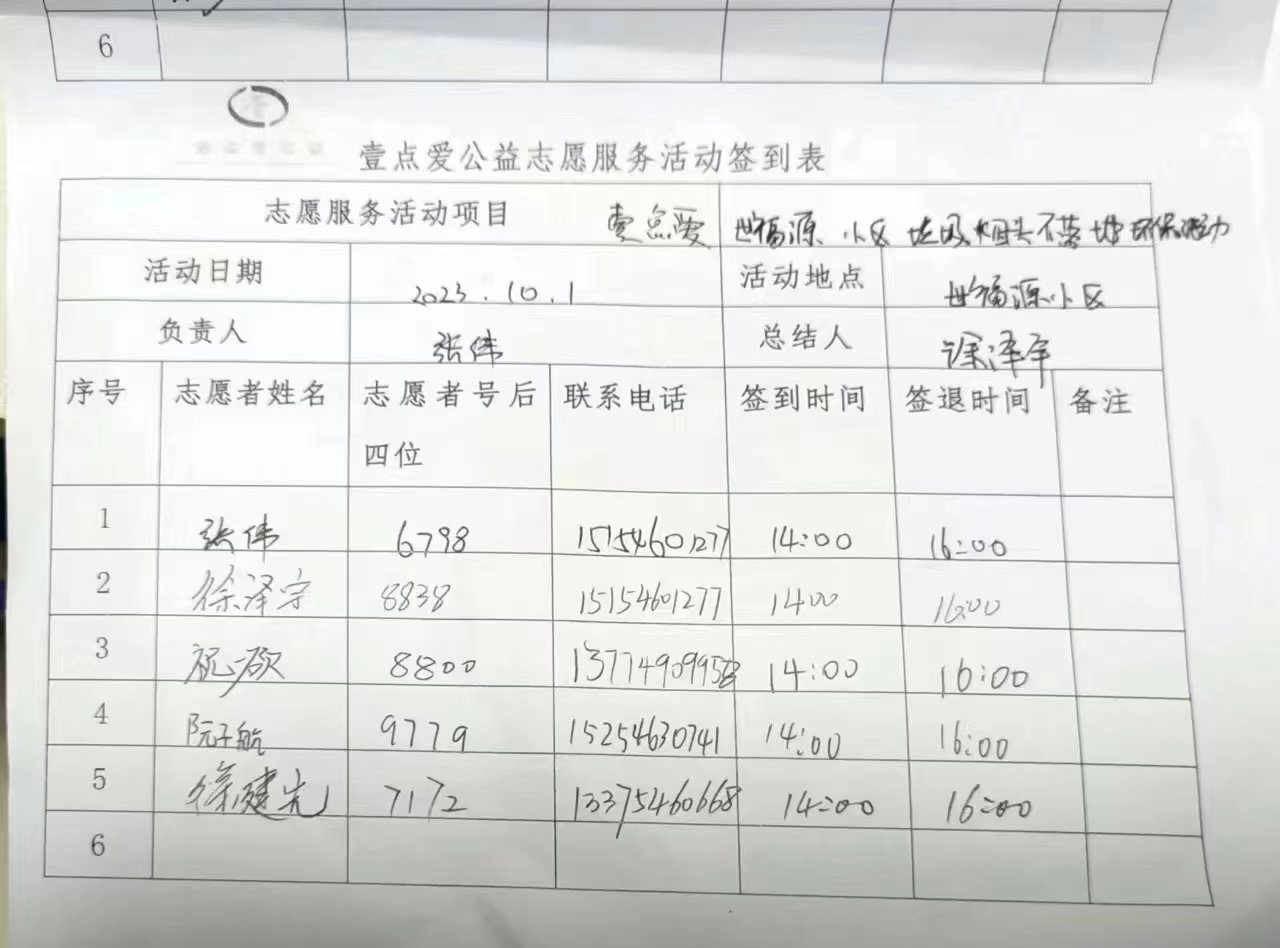 6
壹点爱公益志愿服务活动签到表
志愿服务活动项目 壹点爱 世福源小区垃圾烟头不落地环保活动
活动日期 2023.10.1 活动地点 世福源小区
负责人 张伟 总结人 徐泽宇
序号 志愿者姓名 志愿者号后 联系电话 签到时间 签退时间 备注
四位
1 张伟 6798 15154601277 14:00 16:00
2 徐泽宇 8838 15154601277 1400 16:00
3 祝硕 8800 13774909958 14:00 16:00
4 阮子航 9779 15254630741 14:00 16:00
5 徐建光 7172 13375460668 14:00 16:00
6